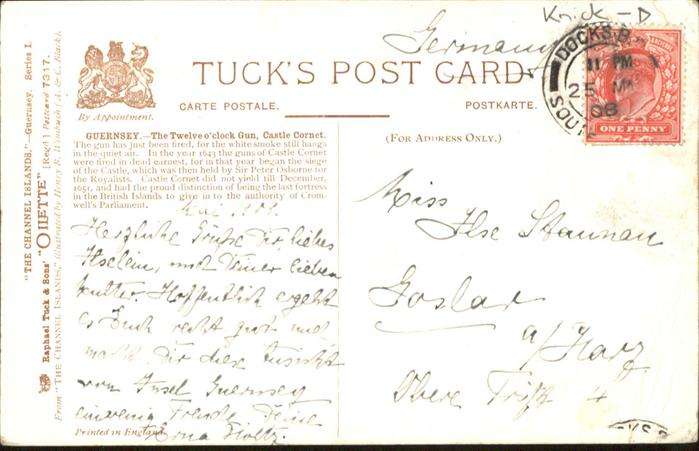 Knick – D
Germany
TUCK'S POST CARD
CARTE POSTALE.
POSTKARTE.
By Appointment.
(FOR ADDRESS ONLY.)
DOCKS.B.O
11 PM
25 MR
08
SOUTH
ONE PENNY
GUERNSEY.—The Twelve o'clock Gun, Castle Cornet.
The gun has just been fired, for the white smoke still hangs
in the quiet air. In the year 1643 the guns of Castle Cornet
were fired in dead earnest, for in that year began the siege
of the Castle, which was then held by Sir Peter Osborne for
the Royalists. Castle Cornet did not yield till December,
1651, and had the proud distinction of being the last fortress
in the British Islands to give in to the authority of Crom-
well's Parliament.
Herzliche Grüße Dir liebes
Ilselein, und Deiner lieben
Mutter. Hoffentlich ergeht
es Euch recht gut und
macht Dir diese Ansicht
von Insel Guernsey
ein wenig Freude. Deine
Erna
Printed in England.
Miss
Ilse
Goslar
a/Harz
Obere 4
"THE CHANNEL ISLANDS,"—Guernsey. Series I.
Raphael Tuck & Sons' "OILETTE" [Regd.] Postcard 7317.
From "THE CHANNEL ISLANDS," illustrated by Henry B. Wimbush (A. & C. Black).